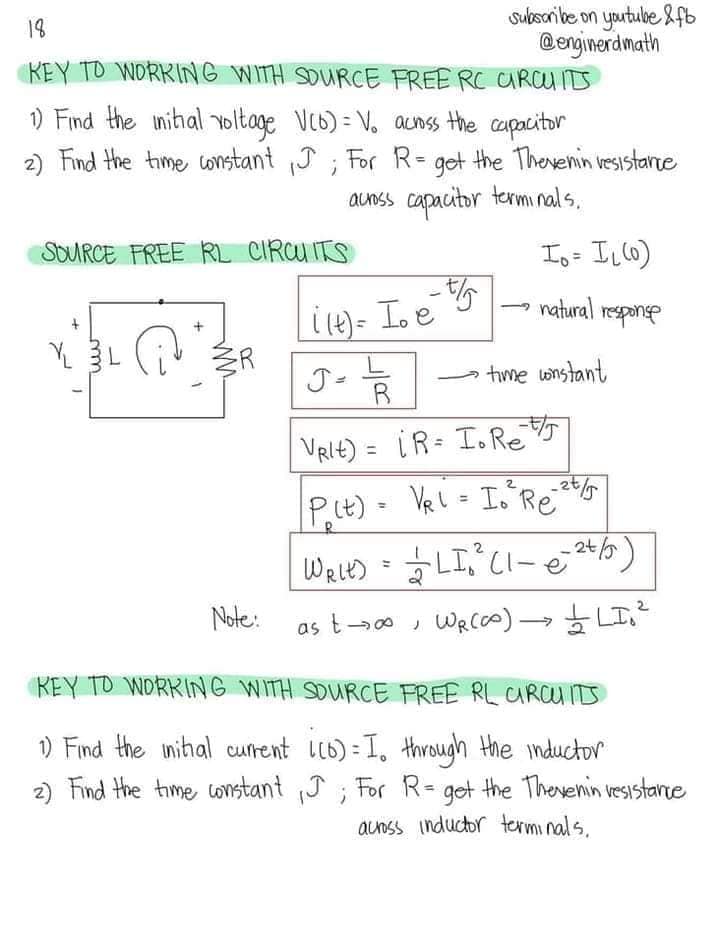 18
subscribe on youtube & fb
@enginerdmath
KEY TO WORKING WITH SOURCE FREE RC CIRCUITS
1) Find the initial voltage V(0) = V₀ across the capacitor
2) Find the time constant, τ ; For R = get the Thevenin resistance
across capacitor terminals.
SOURCE FREE RL CIRCUITS
I₀ = I_L(0)
i(t) = I₀ e^(-t/τ) → natural response
+ V_L - L i + - R
τ = L/R → time constant
V_R(t) = iR = I₀Re^(-t/τ)
P_R(t) = V_R i = I₀²Re^(-2t/τ)
W_R(t) = 1/2 LI₀² (1 - e^(-2t/τ))
Note: as t → ∞ , W_R(∞) → 1/2 LI₀²
KEY TO WORKING WITH SOURCE FREE RL CIRCUITS
1) Find the initial current i(0) = I₀ through the inductor
2) Find the time constant, τ ; For R = get the Thevenin resistance
across inductor terminals.